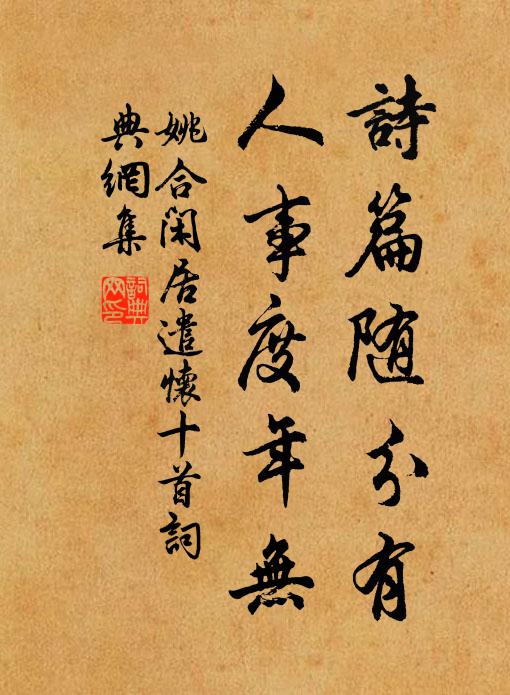 詩篇随分有
人事度年無
姚合閑居遣懷十首詞
典網集
詞典
网印